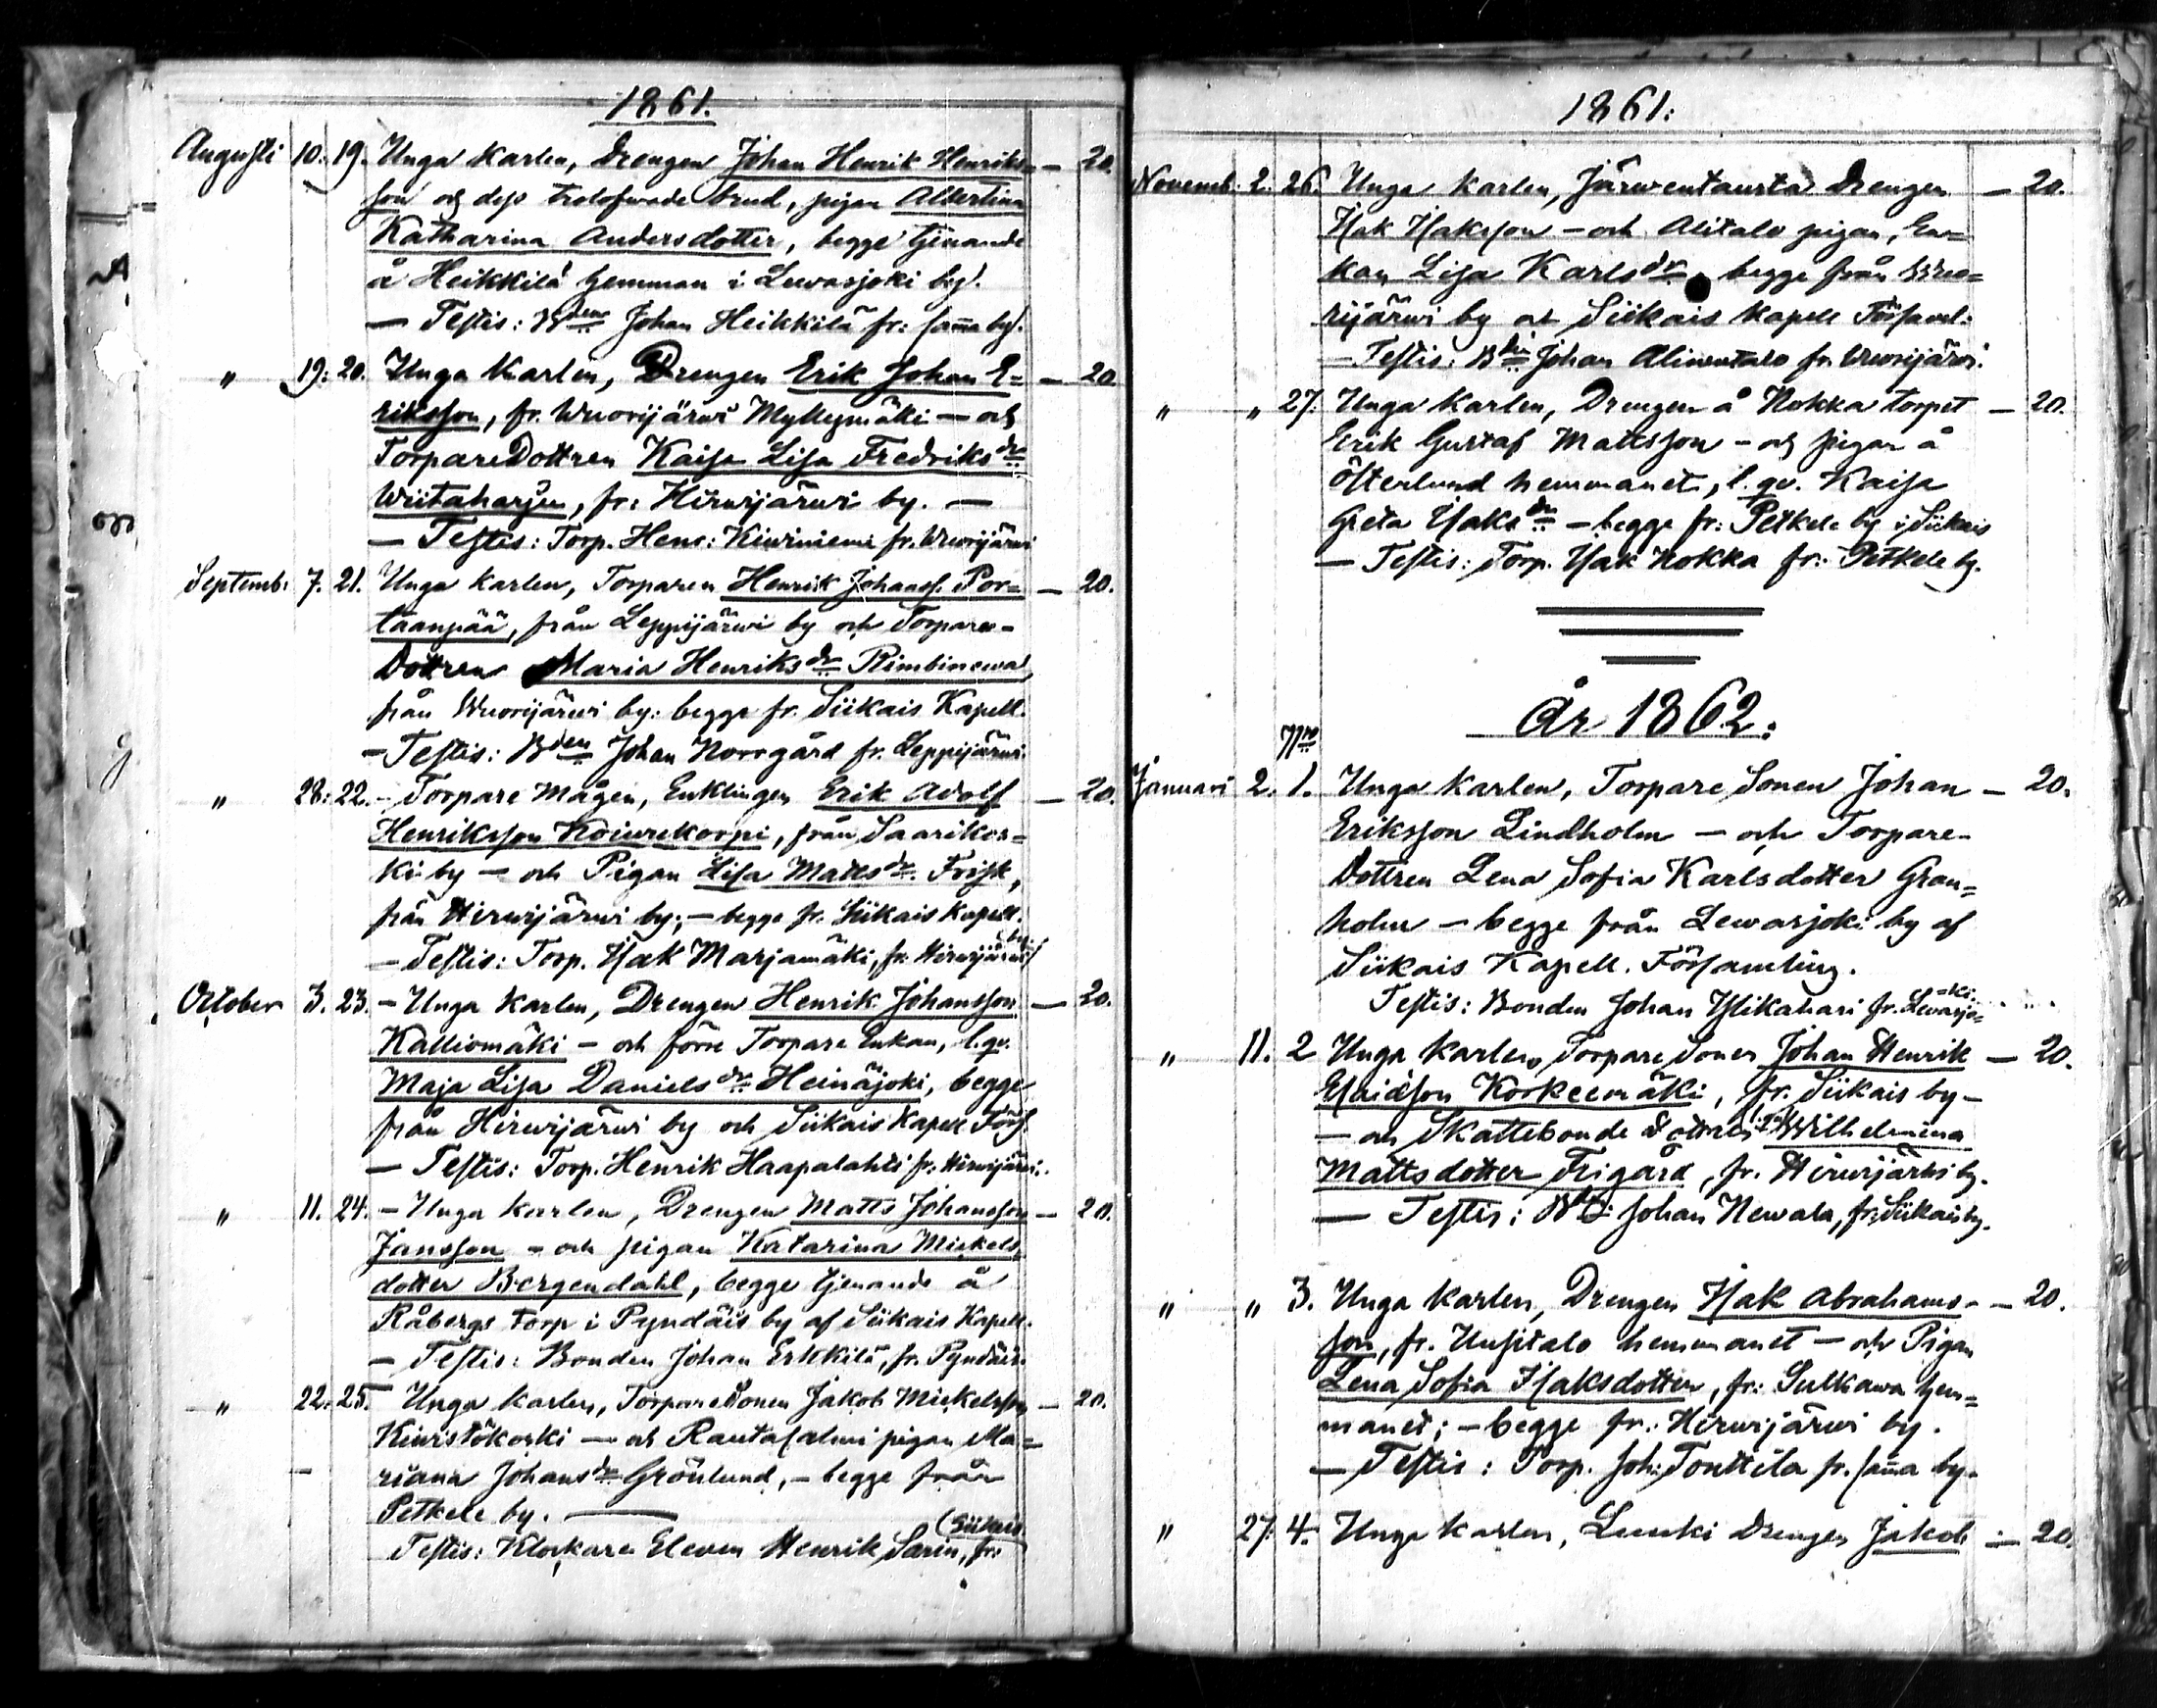 1861.
Augusti 10. 19. Unga Karlen, Drengen Johan Henrik Henriks= — 20.
son och dess trolofwade brud, pigan Albertina
Katharina Andersdotter, begge tjenande
å Heikkilä hemman i Lewasjoki by.
— Testis: Bden Johan Heikkilä fr: samma by.
" 19: 20. Unga Karlen, Drengen Erik Johan E= — 20
riksson, fr. Wuorijärwi Myllymäki — och
TorpareDottren Kaisa Lisa Fredriksdr
Wiitaharju, fr: Hirwijärwi by. —
— Testis: Torp. Henr: Kiwiniemi fr. Wuorijärwi
Septemb: 7. 21. Unga Karlen, Torparen Henrik Johanss. Por= — 20.
taanpää, från Leppijärwi by och Torpare-
Dottren Maria Henriksdr Rimbinewa
från Wuorijärwi by: begge fr. Siikais Kapell.
— Testis: Bden Johan Norrgård fr. Leppijärwi.
" 28: 22. – Torpare Mågen, Enklingen Erik Adolf — 20.
Henriksson Koiwrekorpi, från Saarikos=
ki by — och Pigan Lisa Mattsdr. Frisk,
från Hirwijärwi by; — begge fr. Siikais Kapell.
— Testis: Torp. Isak Marjamäki, fr. Hirwijärwi by.
October 3. 23. – Unga Karlen, Drengen Henrik Johansson — 20.
Kalliomäki — och förre Torpare Enkan, l. qv.
Maja Lisa Danielsdr Heinäjoki, begge
från Hirwijärwi by och Siikais Kapell Förs.
— Testis: Torp. Henrik Haapalahti fr. Hirwijärwi.
" 11. 24. – Unga Karlen, Drengen Matts Johansson — 20.
Jansson — och pigan Katarina Mickels=
dotter Bergendahl, begge tjenande å
Råbergs torp i Pyndäis by af Siikais Kapell.
— Testis: Bonden Johan Erkkilä, fr. Pyndäis.
" 22. 25. Unga Karlen, TorpareSonen Jakob Mickelsson — 20.
Kiuristökoski — och Rautasalmi pigan Ma=
riana Johansdr Grönlund, — begge från
Petkele by. —
Testis: Klockare Eleven Henrik Sarin, fr: (Siikais
1861:
Novemb. 2. 26. Unga Karlen, Järwentausta Drengen — 20.
Isak Isaksson — och Alitalo pigan, En=
kan Lisa Karlsdr begge från Wuo=
rijärwi by och Siikais Kapell Församl:
— Testis: Bdn Johan Alinentalo fr. Wuorijärwi.
" " 27. Unga Karlen, Drengen å Nokka torpet — 20.
Erik Gustaf Mattsson — och pigan å
Österlund hemmanet, l. qv. Kaisa
Greta Isaksdr — begge fr: Petkele by i Siikais
— Testis: Torp. Isak Nokka fr: Petkele by.
År 1862:
Nro
Januari 2. 1. Unga Karlen, Torpare Sonen Johan — 20.
Eriksson Lindholm — och Torpare-
Dottren Lena Sofia Karlsdotter Gran=
holm — begge från Lewasjoki by af
Siikais Kapell. Församling.
Testis: Bonden Johan Ylikahari fr. Lewasjo=ki.
" 11. 2 Unga Karlen, Torpare Sonen Johan Henrik — 20.
Esaiasson Korkeemäki, fr. Siikais by —
— och Skattebonde Dottren Wilhelmina
Mattsdotter Frigård, fr. Hirwijärwi by.
— Testis: Bdn Johan Newala, fr. Siikais by.
" " 3. Unga Karlen, Drengen Isak Abrahams- — 20.
son, fr. Uusitalo hemmanet — och Pigan
Lena Sofia Isaksdotter, fr: Sulkawa hem=
manet; — begge fr: Hirwijärwi by.
— Testis: Torp. Joh: Tonttila fr. samma by.
" 27. 4. Unga Karlen, Luuski Drengen Jakob — 20.